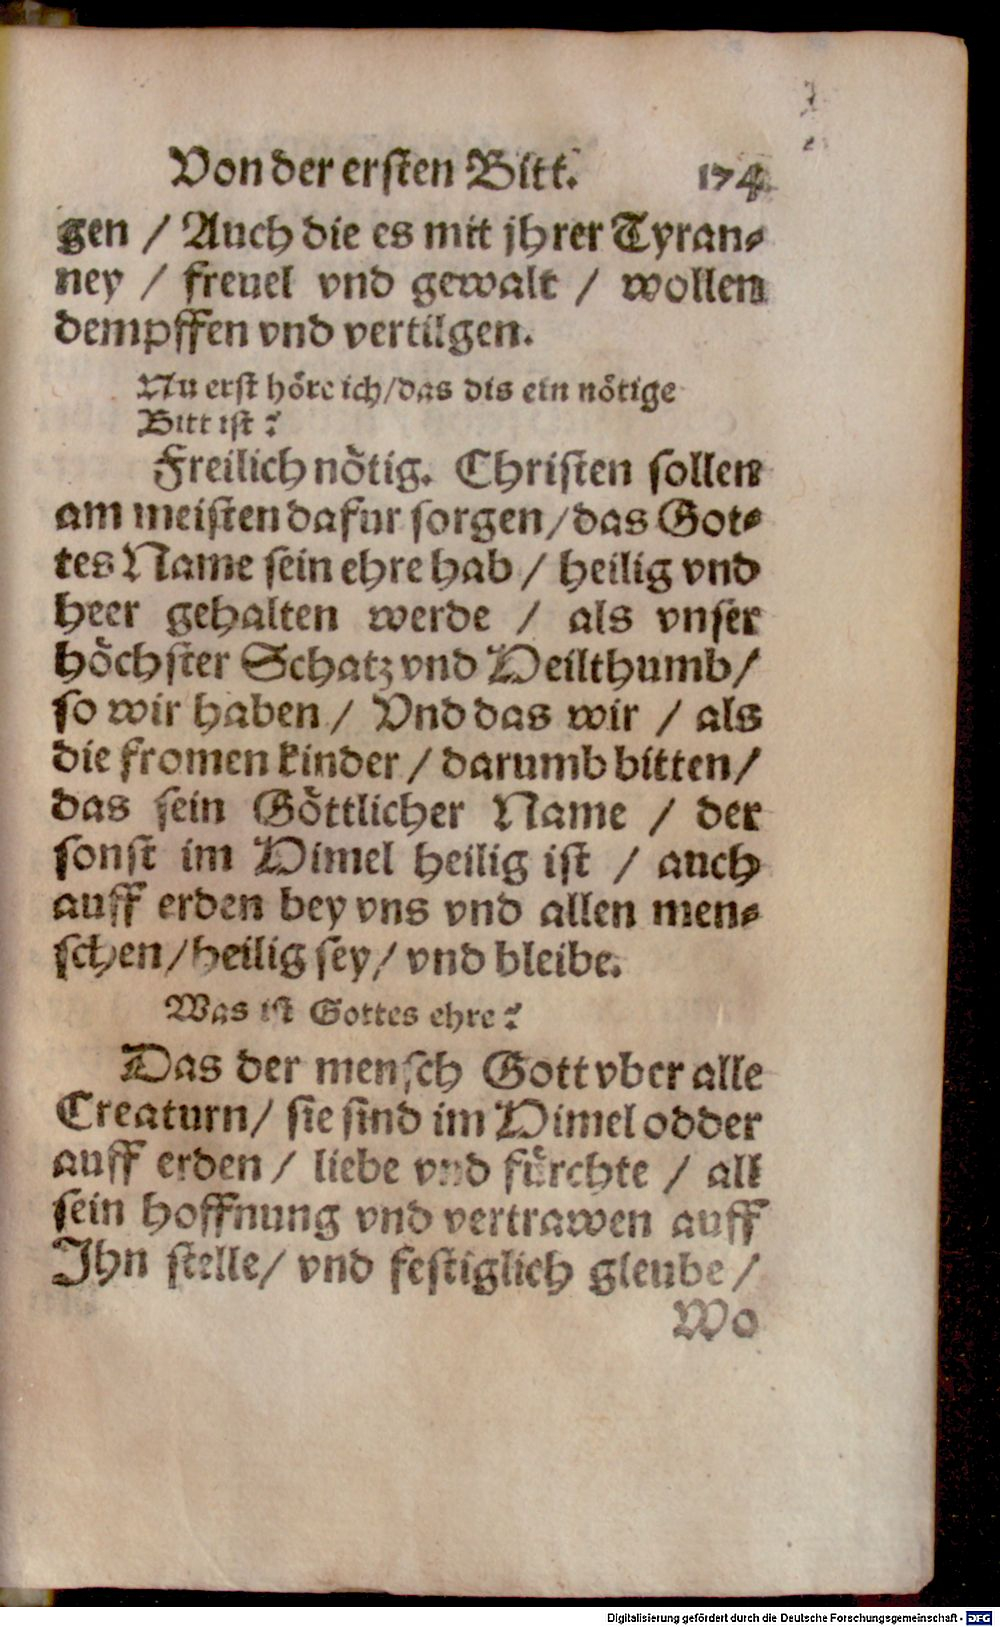 Von der ersten Bitt. 174
gen / Auch die es mit jhrer Tyran⸗
ney / freuel vnd gewalt / wollen
dempffen vnd vertilgen.
Nu erst höre ich/das dis ein nötige
Bitt ist?
Freilich nötig. Christen sollen
am meisten dafur sorgen/das Got⸗
tes Name sein ehre hab / heilig vnd
heer gehalten werde / als vnser
höchster Schatz vnd Heilthumb/
so wir haben / Vnd das wir / als
die fromen kinder / darumb bitten/
das sein Göttlicher Name / der
sonst im Himel heilig ist / auch
auff erden bey vns vnd allen men⸗
schen/heilig sey/ vnd bleibe.
Was ist Gottes ehre?
Das der mensch Gott vber alle
Creaturn/ sie sind im Himel odder
auff erden / liebe vnd fürchte / all
sein hoffnung vnd vertrawen auff
Ihn stelle/ vnd festiglich gleube /
Wo
Digitalisierung gefördert durch die Deutsche Forschungsgemeinschaft - DFG